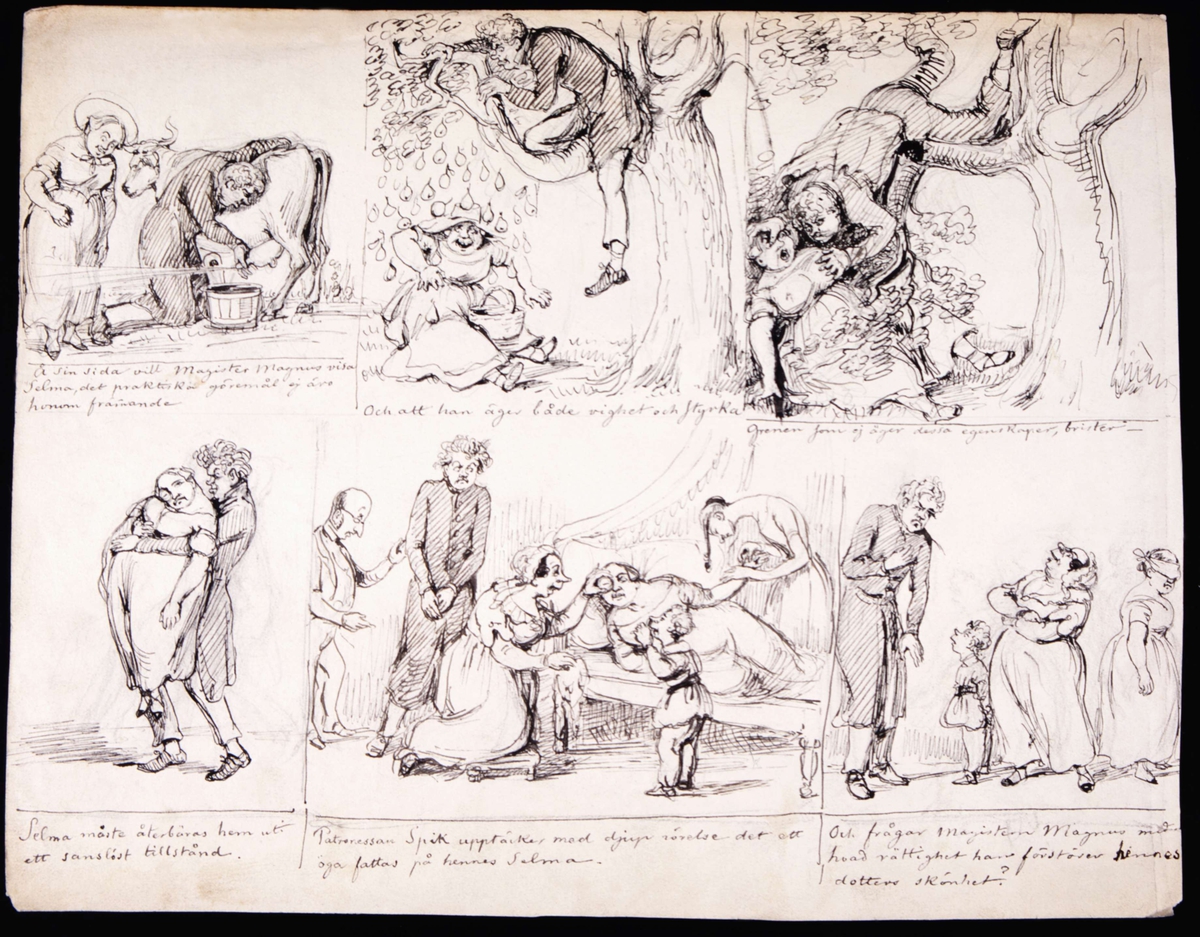 Å sin sida vill Magister Magnus visa
Selma, det praktiska göremål ej äro
honom främande
Och att han äger både vighet och styrka
Grenen som ej äger dessa egenskaper, brister —
Selma måste återbäras hem uti
ett sanslöst tillstånd.
Patronessan Spik upptäcker med djup rörelse det ett
öga fattas på hennes Selma.
Och frågar Magistern Magnus med
hvad rättighet han förstöver hennes
dotters skönhet?